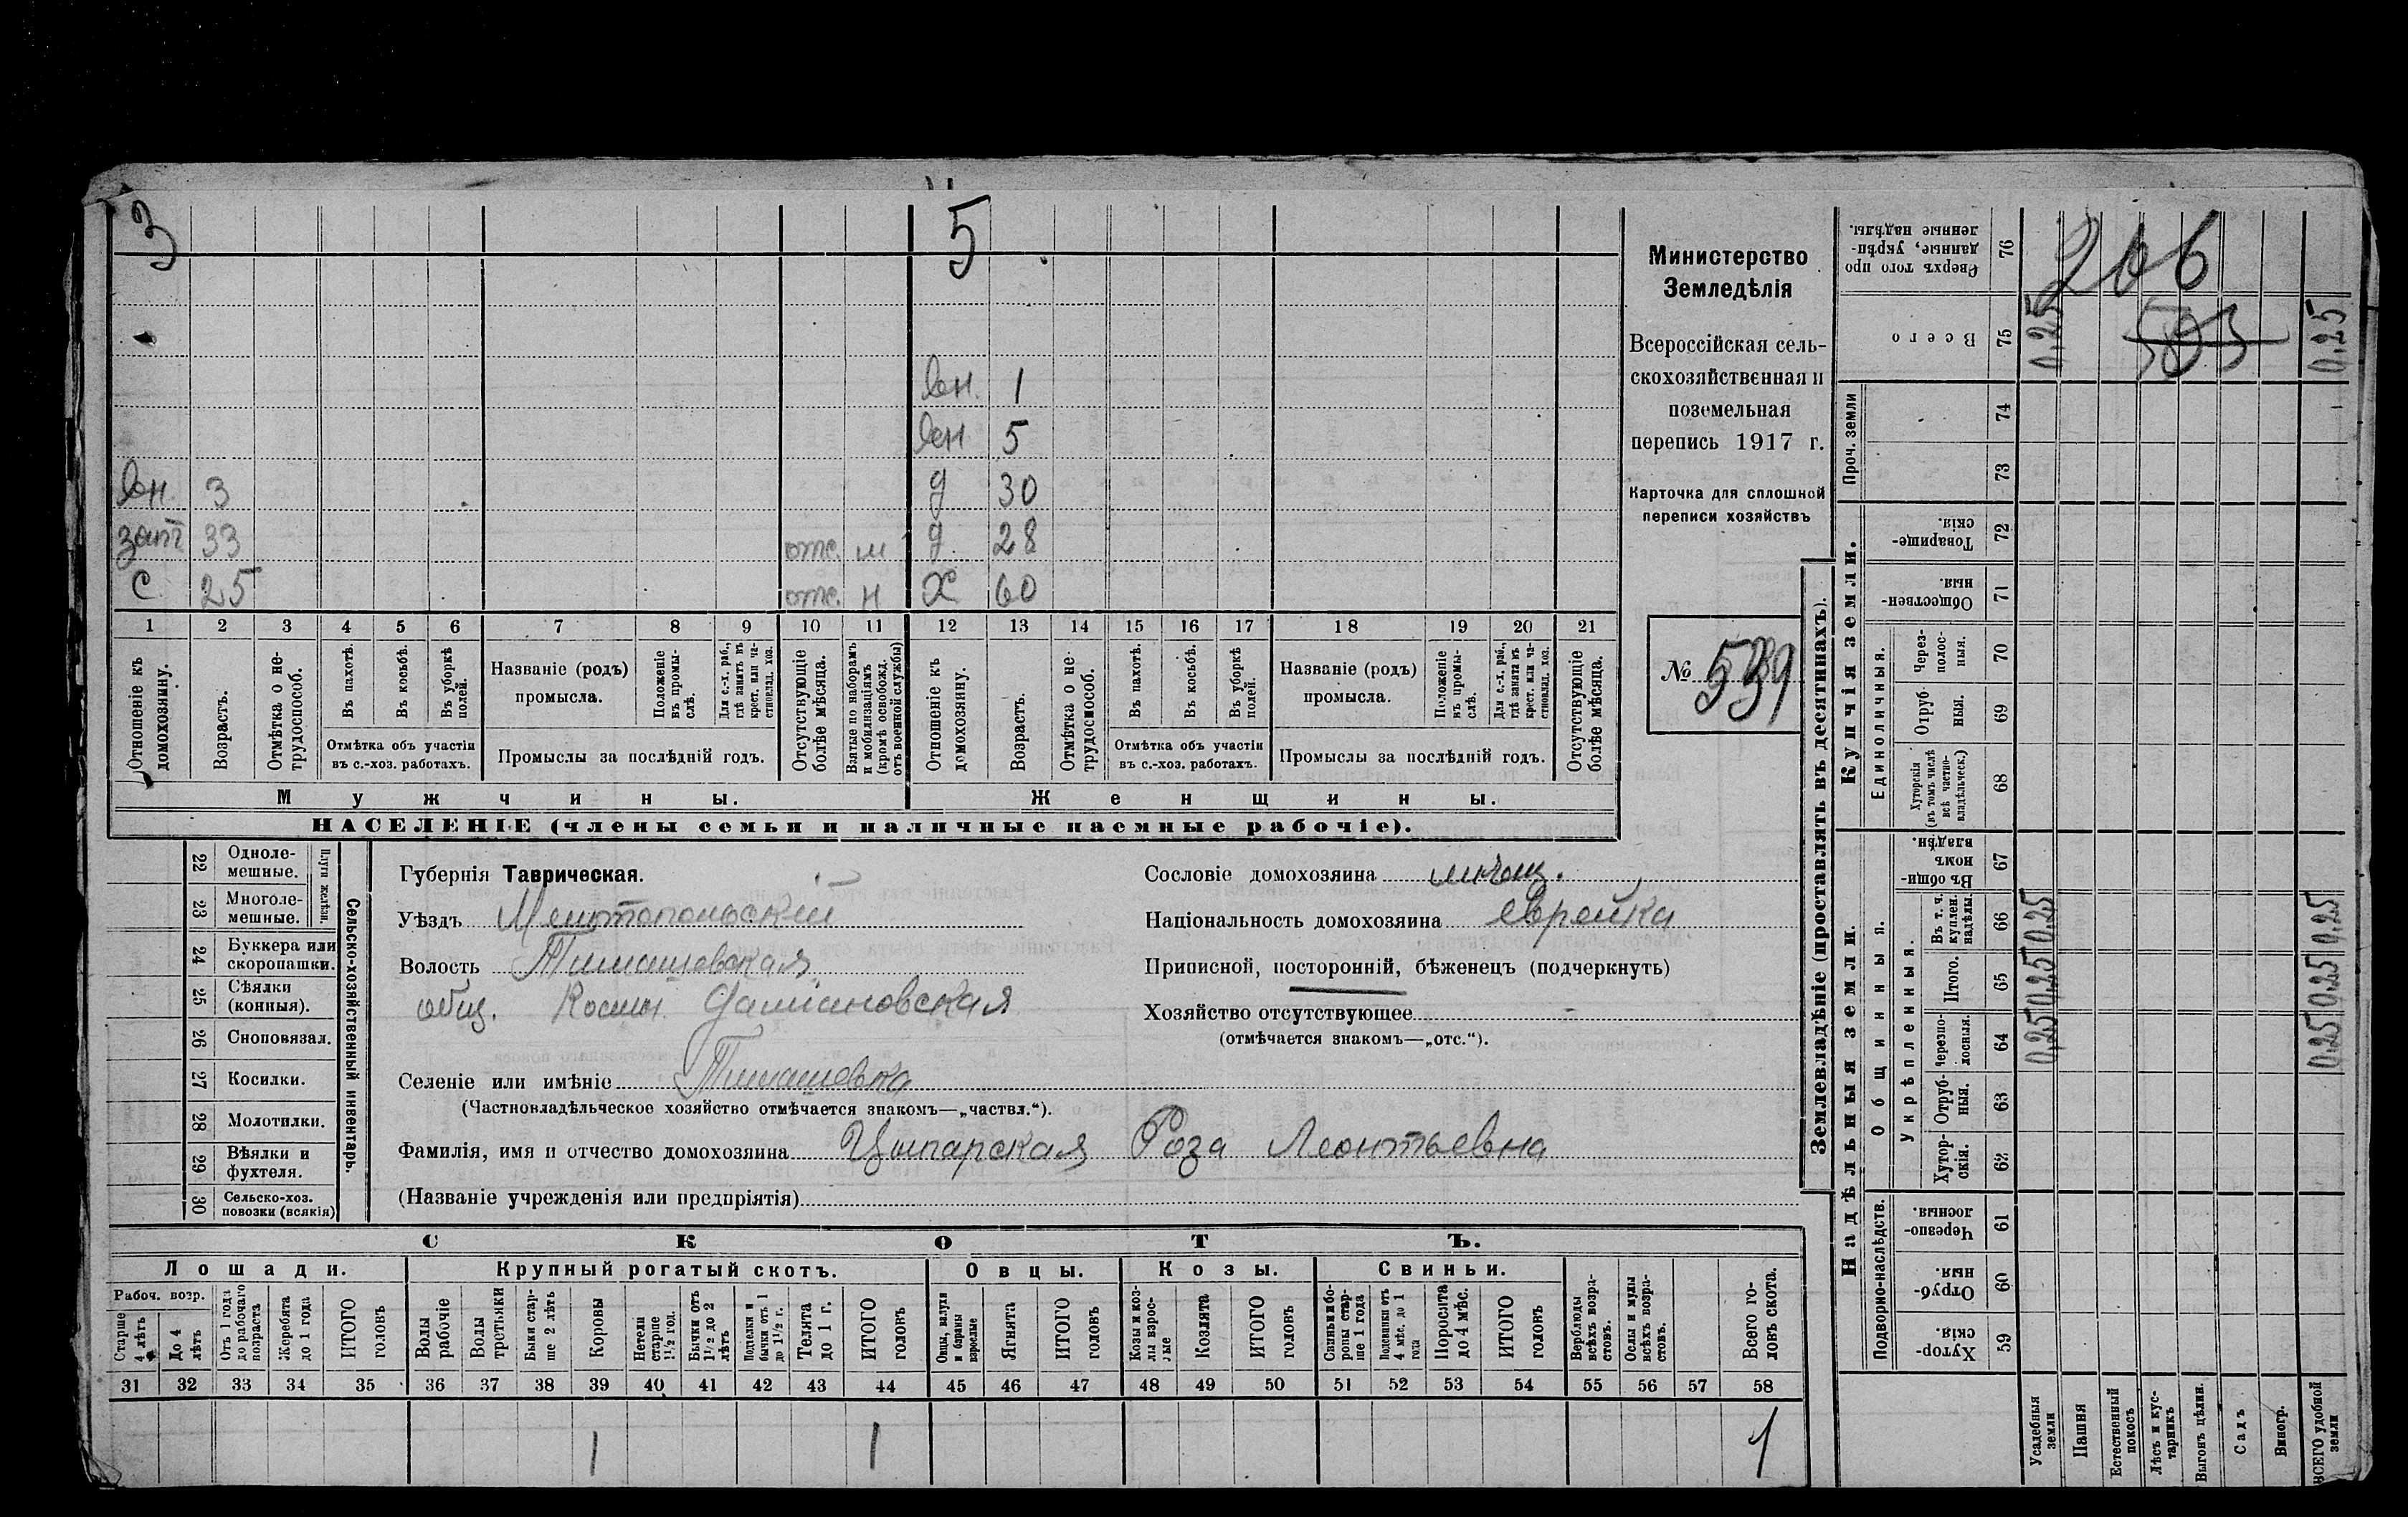 3
5
вн. 1
вн 5
вн. 3
д 30
зат 33
отс. м
д. 28
с 25
отс. н
х 60
1 2 3 4 5 6 7 8 9 10 11 12 13 14 15 16 17 18 19 20 21
Отношеніе къ домохозяину.
Возрастъ.
Отмѣтка о не-трудоспособ.
Въ пахотѣ.
Въ косьбѣ.
Въ уборкѣ полей.
Отмѣтка объ участіи въ с.-хоз. работахъ.
Названіе (родъ) промысла.
Положеніе въ промы-слѣ.
Для с.-х. раб., гдѣ занятъ въ крест. или ча-стновлад. хоз.
Промыслы за послѣдній годъ.
Отсутствующіе болѣе мѣсяца.
Взятые по наборамъ и мобилизаціямъ (кромѣ освобожд. отъ военной службы)
Отношеніе къ домохозяину.
Возрастъ.
Отмѣтка о не трудоспособ.
Въ пахотѣ.
Въ косьбѣ.
Въ уборкѣ полей.
Отмѣтка объ участіи въ с.-хоз. работахъ.
Названіе (родъ) промысла.
Положеніе въ промы-слѣ.
Для с.-х. раб., гдѣ занята въ крест. или ча-стновлад. хоз.
Промыслы за послѣдній годъ.
Отсутствующіе болѣе мѣсяца.
Мужчины.
Женщины.
НАСЕЛЕНІЕ (члены семьи и наличные наемные рабочіе).
Министерство
Земледѣлія
Всероссійская сель-
скохозяйственная и
поземельная
перепись 1917 г.
Карточка для сплошной
переписи хозяйствъ
№
22 Одноле-мешные.
23 Многоле-мешные.
Плуги желѣзн.
24 Буккера или скоропашки.
25 Сѣялки (конныя).
26 Сноповязал.
27 Косилки.
28 Молотилки.
29 Вѣялки и фухтеля.
30 Сельско-хоз. повозки (всякія)
Сельско-хозяйственный инвентарь.
Губернія Таврическая.
Уѣздъ Мелитопольскій
Волость Тимашевская
общ. Косьм. Даміановская
Селеніе или имѣніе Тимашевка
(Частновладѣльческое хозяйство отмѣчается знакомъ—„частвл.“).
Фамилія, имя и отчество домохозяина Цыпарская Роза Леонтьевна
(Названіе учрежденія или предпріятія)
Сословіе домохозяина мѣщ.
Національность домохозяина еврейка
Приписной, посторонній, бѣженецъ (подчеркнуть)
Хозяйство отсутствующее –
(отмѣчается знакомъ—„отс.“).
СКОТЪ.
Лошади.
Крупный рогатый скотъ.
Овцы.
Козы.
Свиньи.
Рабоч. возр.
Старше 4 лѣтъ
До 4 лѣтъ
Отъ 1 года до рабочаго возраста
Жеребята до 1 года
ИТОГО головъ
Волы рабочіе
Волы третьяки
Быки стар-ше 2 лѣтъ
Коровы
Нетели старше 1½ год.
Бычки отъ 1½ до 2 лѣтъ
Подтелки и бычки отъ 1 до 1½ г.
Телята до 1 г.
ИТОГО головъ
Овцы, валухи и бараны взрослые
Ягнята
ИТОГО головъ
Козы и коз-лы взрос-лые
Козлята
ИТОГО головъ
Свиньи и бо-ровы стар-ше 1 года
Подсвинки отъ 4 мѣс. до 1 года
Поросята до 4 мѣс.
ИТОГО головъ
Верблюды всѣхъ возра-стовъ.
Ослы и мулы всѣхъ возра-стовъ.
Всего го-ловъ скота.
31 32 33 34 35 36 37 38 39 40 41 42 43 44 45 46 47 48 49 50 51 52 53 54 55 56 57 58
1 1 1
Землевладѣніе (проставлять въ десятинахъ).
Надѣльныя земли.
Купчія земли.
Проч. земли
Подворно-наслѣдств.
Общинныя.
Укрѣпленныя.
Единоличныя.
59 Хутор-скія.
60 Отруб-ныя.
61 Черезпо-лосныя.
62 Хутор-скія.
63 Отруб-ныя.
64 Черезпо-лосныя.
65 Итого.
66 Въ т. ч. куплен. надѣлы.
67 Въ общин-номъ владѣн.
68 Хуторскія (въ томъ числѣ всѣ частно-владѣльческ.)
69 Отруб-ныя.
70 Через-полос-ныя.
71 Обществен-ныя.
72 Товарище-скія.
73
74
75 Всего
76 Сверхъ того про-данные, укрѣп-ленные надѣлы.
Усадебныя земли
Пашня
Естественный покосъ
Лѣсъ и кус-тарникъ
Выгонъ цѣлин.
Садъ
Виногр.
ВСЕГО удобной земли
0,25 0,25 0,25
0,25
0,25 0,25 0,25
0,25
206
503